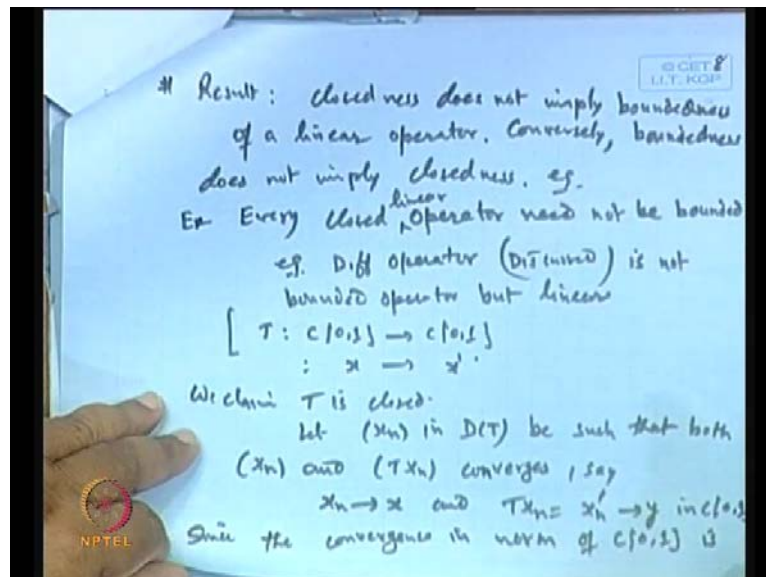 © CET 8
I.I.T. KGP
# Result: closedness does not imply boundedness
of a linear operator. Conversely, boundedness
does not imply closedness. eg.
Ex Every closed linear operator need not be bounded
eg. Diff operator (Discussed) is not
bounded operator but linear
[ T : C[0,1] → C[0,1]
: x → x'.
We claim T is closed.
Let (xn) in D(T) be such that both
(xn) and (Txn) converges, say
xn → x and Txn = xn' → y in C[0,1]
Since the convergence in norm of C[0,1] is
NPTEL